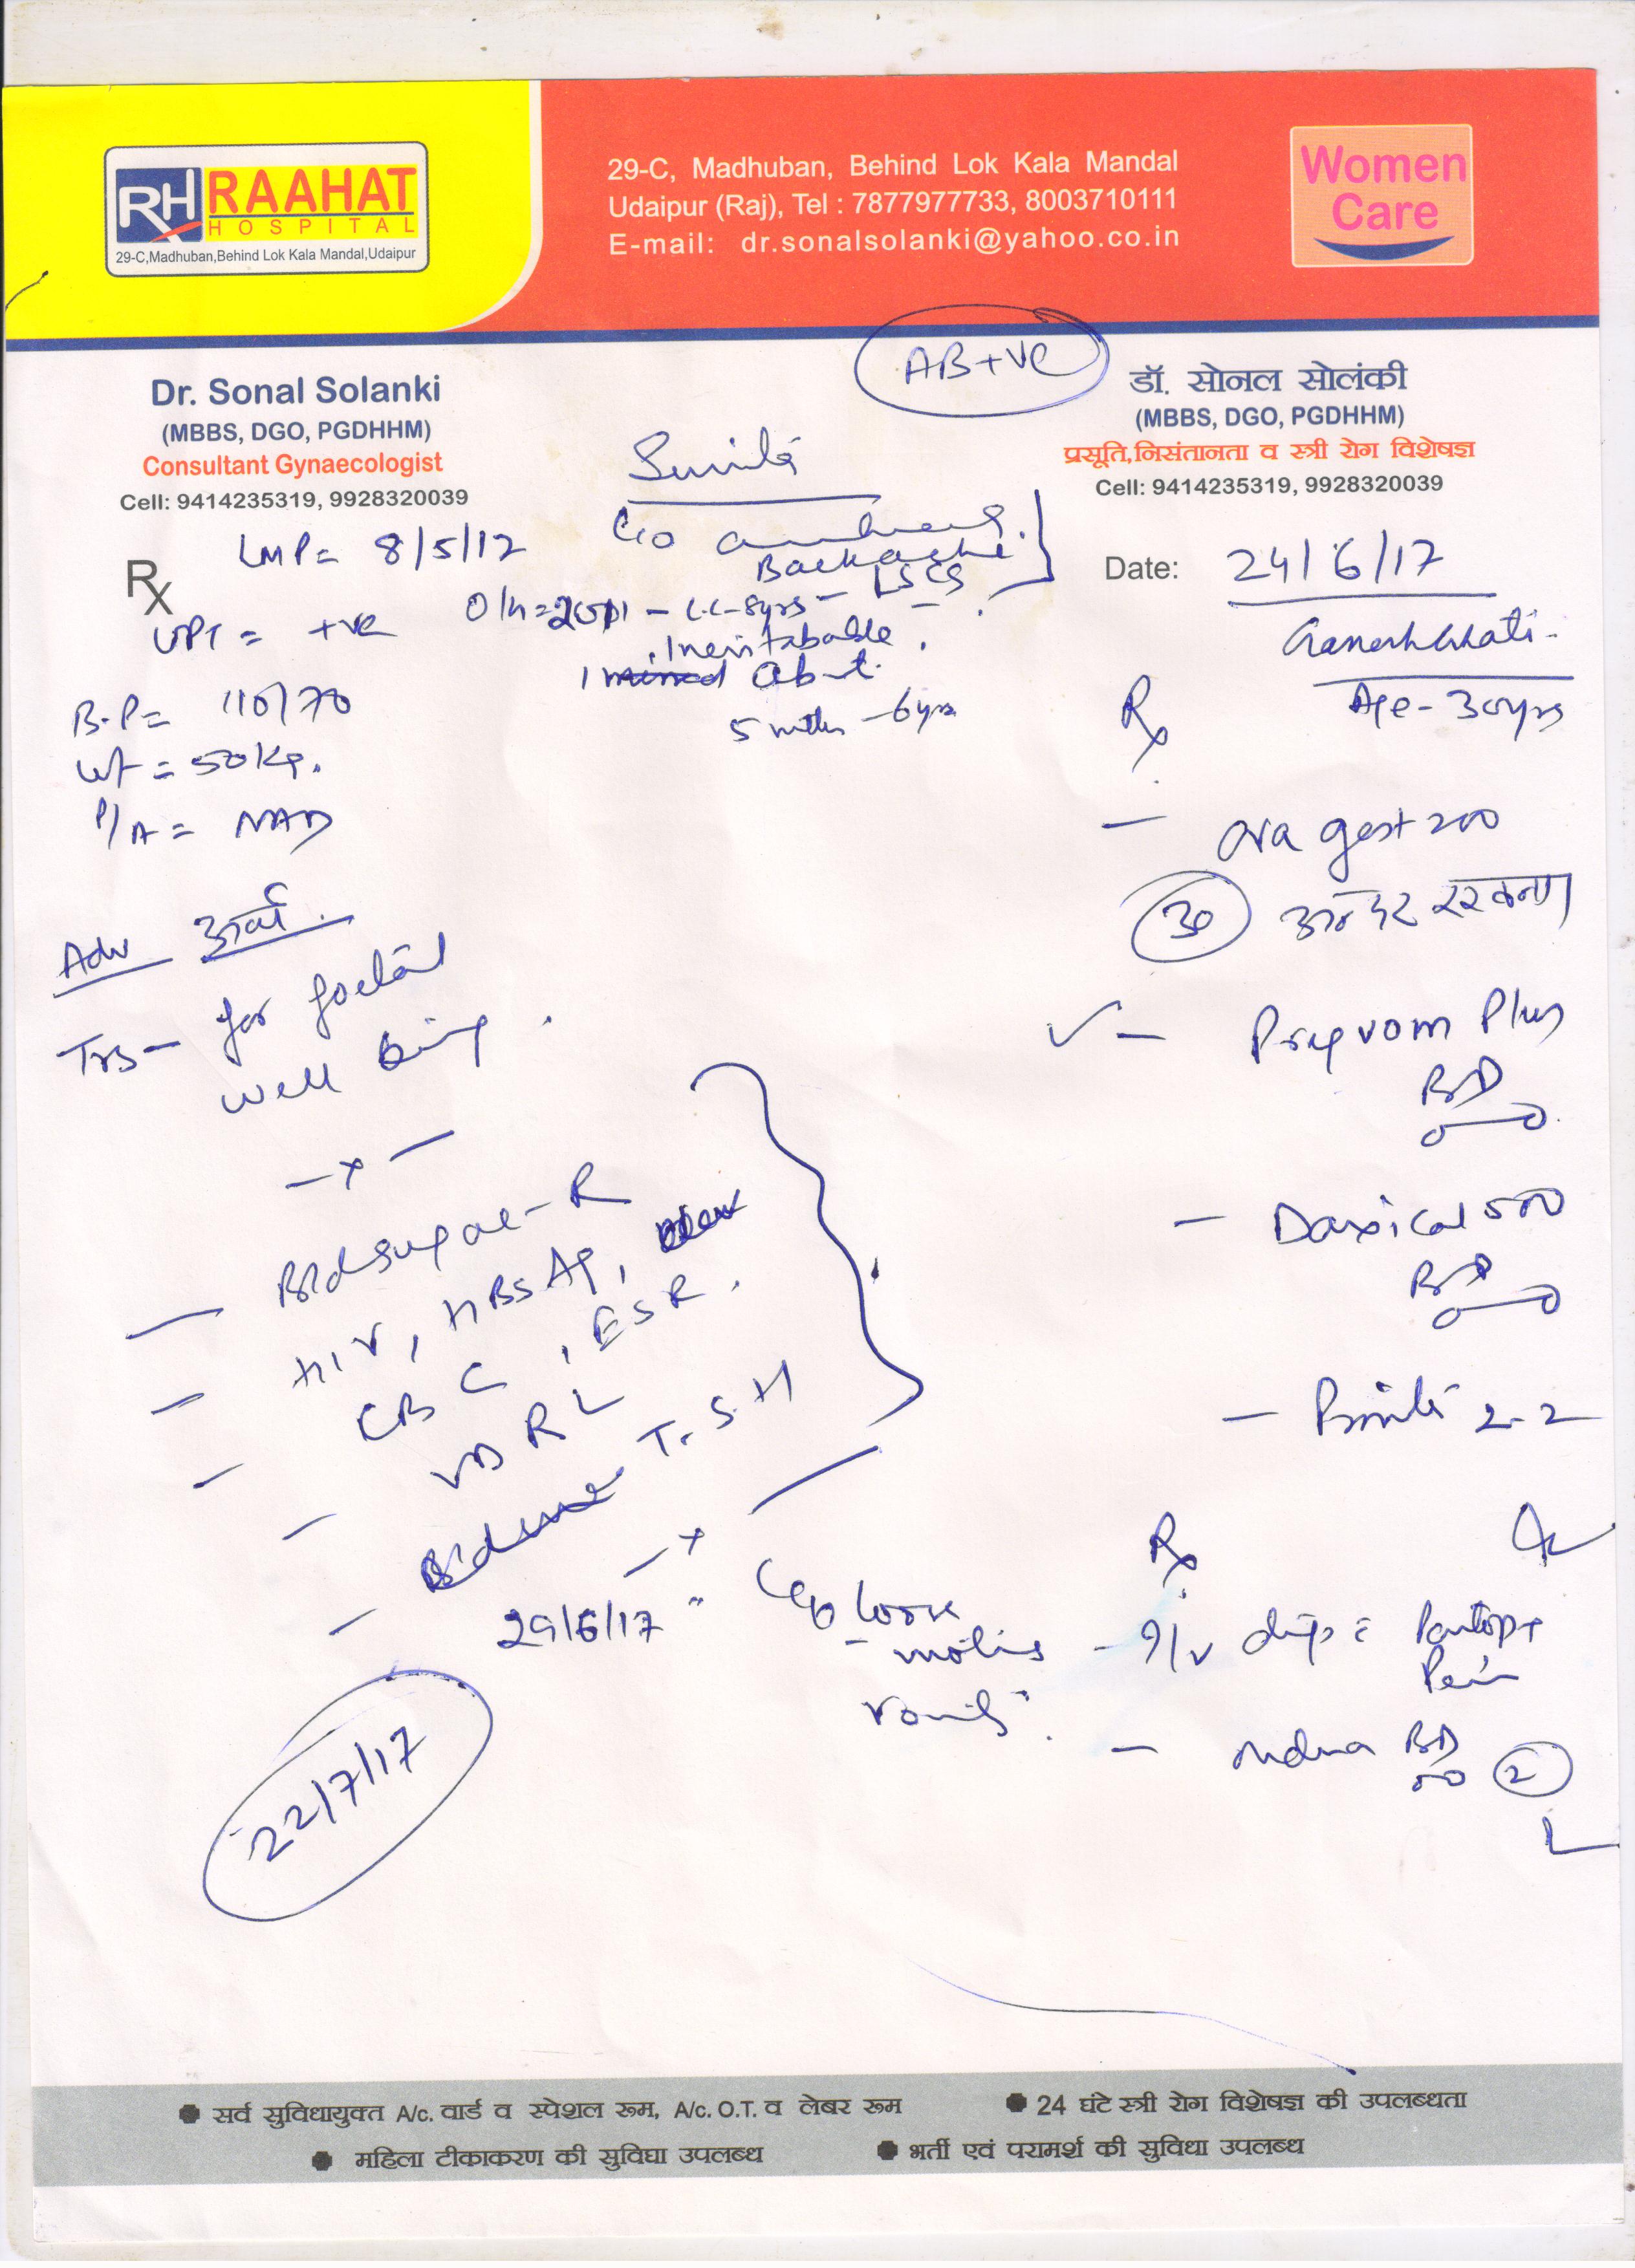 RH RAAHAT
HOSPITAL
29-C,Madhuban,Behind Lok Kala Mandal,Udaipur
29-C, Madhuban, Behind Lok Kala Mandal
Udaipur (Raj), Tel : 7877977733, 8003710111
E-mail: dr.sonalsolanki@yahoo.co.in
Women
Care
AB+ve
Dr. Sonal Solanki
(MBBS, DGO, PGDHHM)
Consultant Gynaecologist
Cell: 9414235319, 9928320039
डॉ. सोनल सोलंकी
(MBBS, DGO, PGDHHM)
प्रसूति,निसंतानता व स्त्री रोग विशेषज्ञ
Cell: 9414235319, 9928320039
Date: 24/6/17
Age - 30yrs
Rx
LMP= 8/5/17
UPT = +ve
B.P= 110/70
Wt = 50kg.
P/A = NAD
C/o
Backache
LSCS
O/H=
8yrs
Inevitabable
Abort.
5 mths - 6yrs
Adv
for foetal
well being.
-x-
Bldsugar-R
HIV, HBsAg,
CBC, ESR.
VDRL
T.S.H
-x-
Rx
- gest 200
30 अन्दर रखना
- Pregvom Plus
BD
- Daxical 500
BD
- 2-2
29/6/17
C/o loose
motions
Rx
- I/V drip
BD
2
22/7/17
सर्व सुविधायुक्त A/c. वार्ड व स्पेशल रूम, A/c. O.T. व लेबर रूम
24 घंटे स्त्री रोग विशेषज्ञ की उपलब्धता
महिला टीकाकरण की सुविधा उपलब्ध
भर्ती एवं परामर्श की सुविधा उपलब्ध